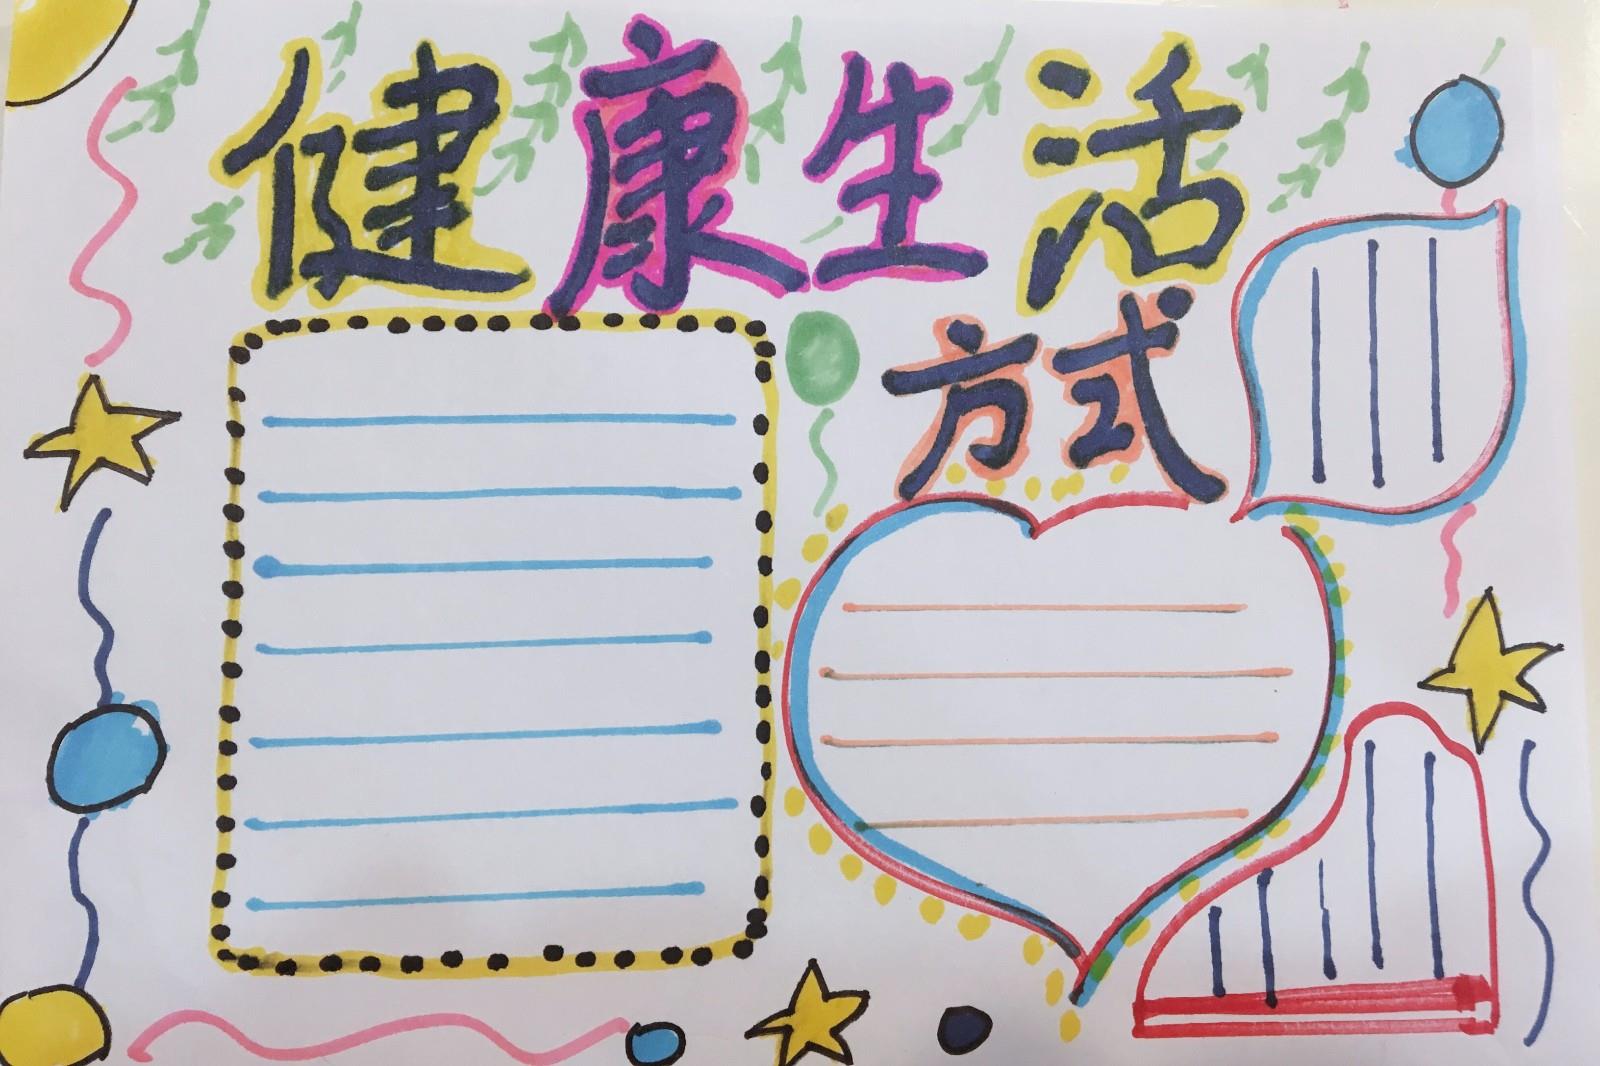 健康生活
方式